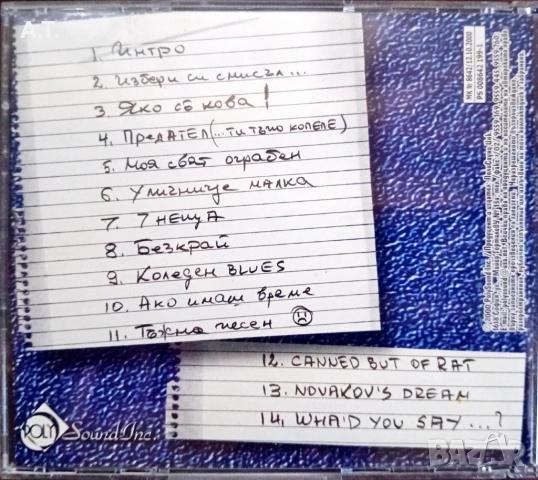 A.T.
1. Интро
2. Избери си смисъл...
3. Яко се кова!
4. Предател (...ти тъпо копеле)
5. Моя свят ограбен
6. Уличнице малка
7. 7 неща
8. Безкрай
9. Коледен BLUES
10. Ако имаш време
11. Тъжна песен
12. CANNED BUT OF RAT
13. NOVAKOV'S DREAM
14. WHA'D YOU SAY...?
POLY Sound Inc.
МК № 8642/12.10.2000
PS 008642 199-1
BAZAR